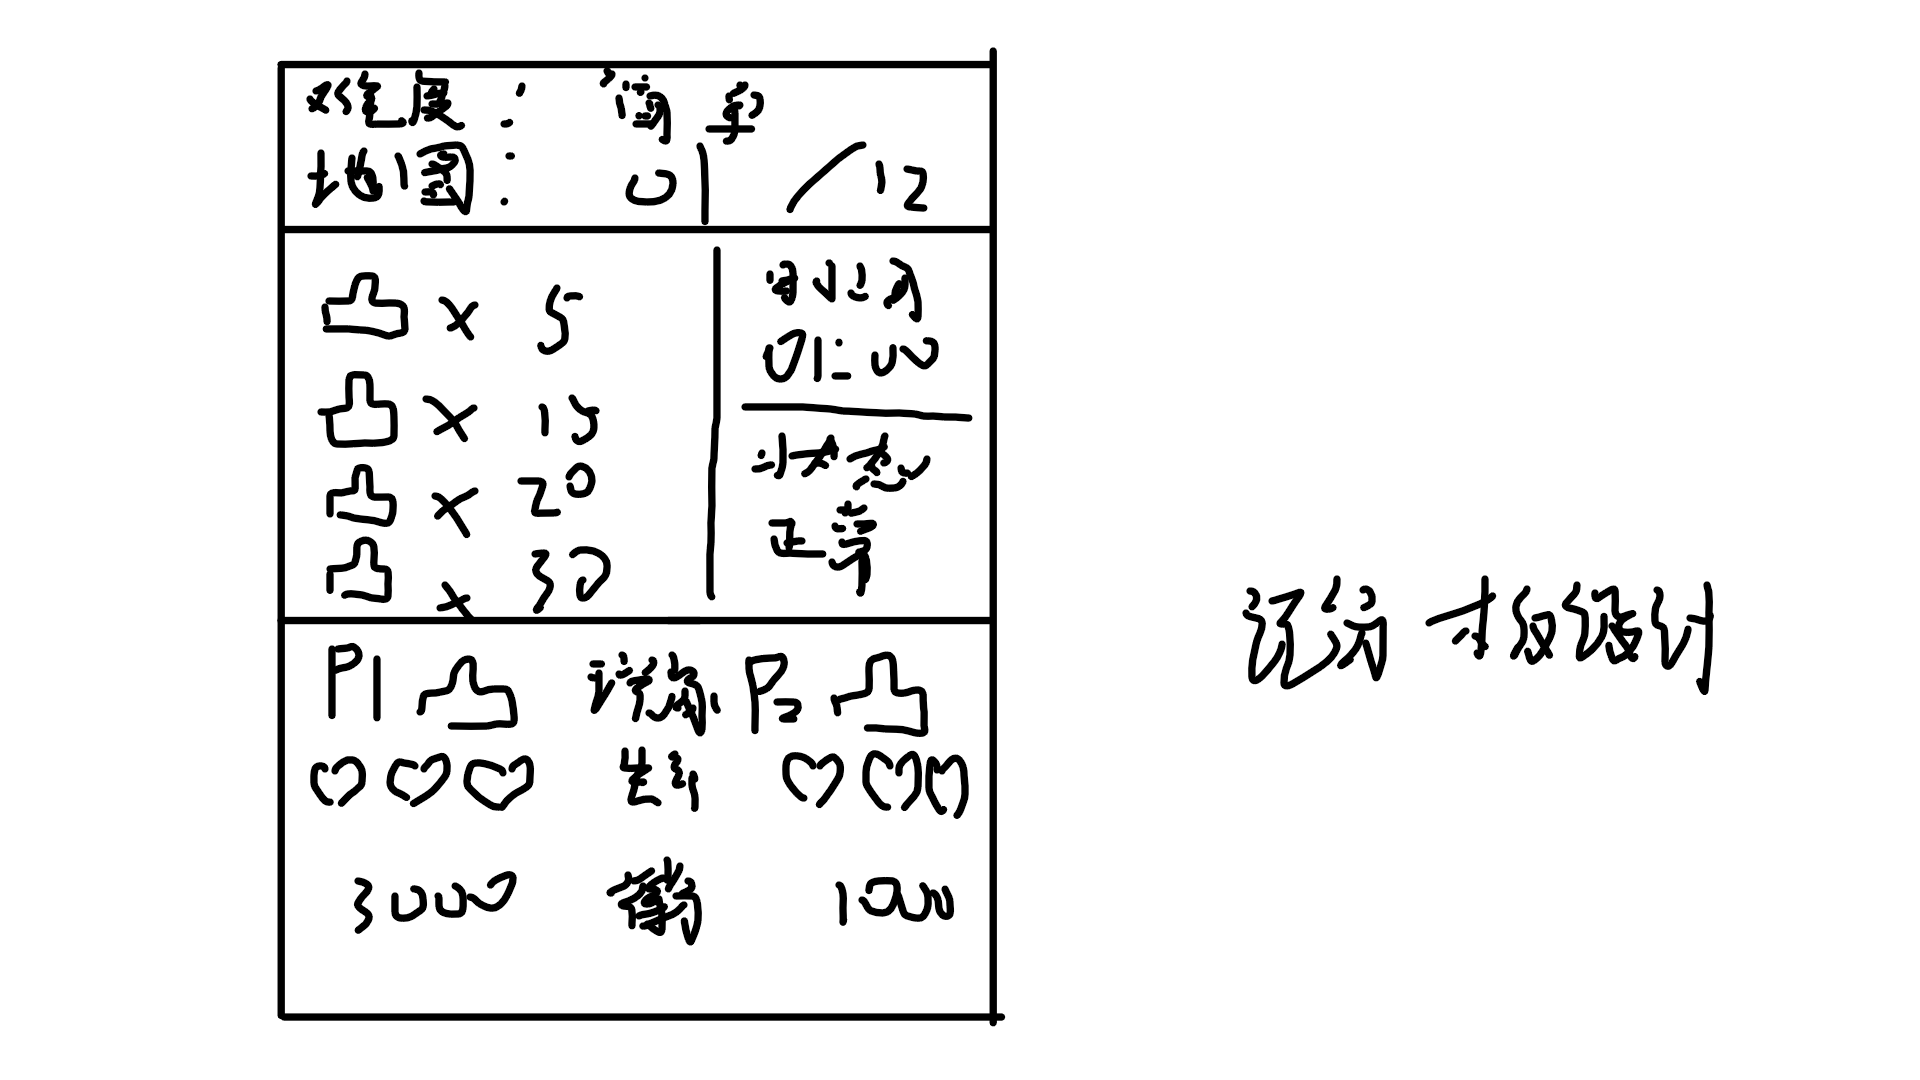 难度: 简单
地图: 01/12
x 5
x 15
x 20
x 30
时间
01:00
状态
正常
P1 P2
生命
3000 得分 1000
记分板设计